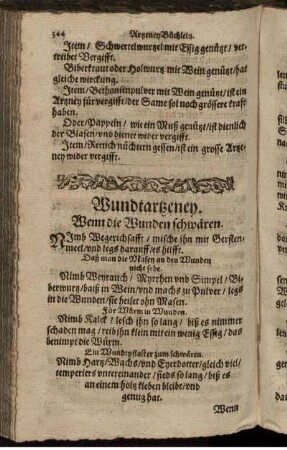 344 Artzney Büchlein.
Item / Schwertelwurtzel mit Essig genützt / ver-
treibet Vergifft.
Biberkraut oder Holwurtz mit Wein genützt / hat
gleiche wirckung.
Item / Bethonienpulver mit Wein genützt / ist ein
Artzney für vergifft / der Same sol noch grössere krafft
haben.
Oder / Pappeln / wie ein Muß genützt / ist dienlich
der Blasen / vnd dienet wider vergifft.
Item / Rettich nüchtern gessen / ist ein grosse Artz-
ney wider vergifft.
Wundtartzeney.
Wenn die Wunden schwären.
Nimb Wegerichsafft / mische ihn mit Gersten-
meel / vnd legs darauff / es hilfft.
Daß man die Masen an den Wunden
nicht sehe.
Nimb Weyrauch / Myrrhen vnd Simpel / Bi-
berwurtz / baiß in Wein / vnd machs zu Pulver / legs
in die Wunden / sie heilet ohn Masen.
Für Würm in Wunden.
Nimb Kalck / lesch ihn so lang / biß es nimmer
schaden mag / reib ihn klein mit ein wenig Essig / das
benimpt die Würm.
Ein Wundtpflaster zum schwären.
Nimb Hartz / Wachs / vnd Eyerdotter / gleich viel /
temperiers vntereinander / sieds so lang / biß es
an einem holtz kleben bleibt / vnd
genug hat.
Wenn